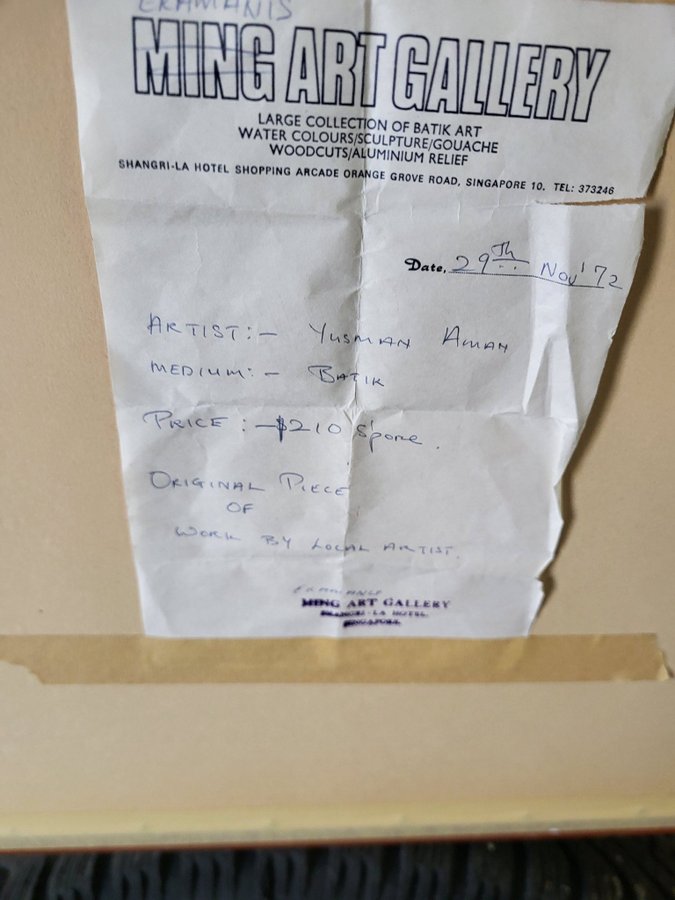 EKAMANIS
MING ART GALLERY
LARGE COLLECTION OF BATIK ART
WATER COLOURS/SCULPTURE/GOUACHE
WOODCUTS/ALUMINIUM RELIEF
SHANGRI-LA HOTEL SHOPPING ARCADE ORANGE GROVE ROAD, SINGAPORE 10. TEL: 373246
Date, 29th Nov' 72
ARTIST:- YUSMAN AMAN
MEDIUM:- BATIK
PRICE:- $210 S'pore.
ORIGINAL PIECE
OF
WORK BY LOCAL ARTIST.
MING ART GALLERY
SHANGRI-LA HOTEL.
SINGAPORE.